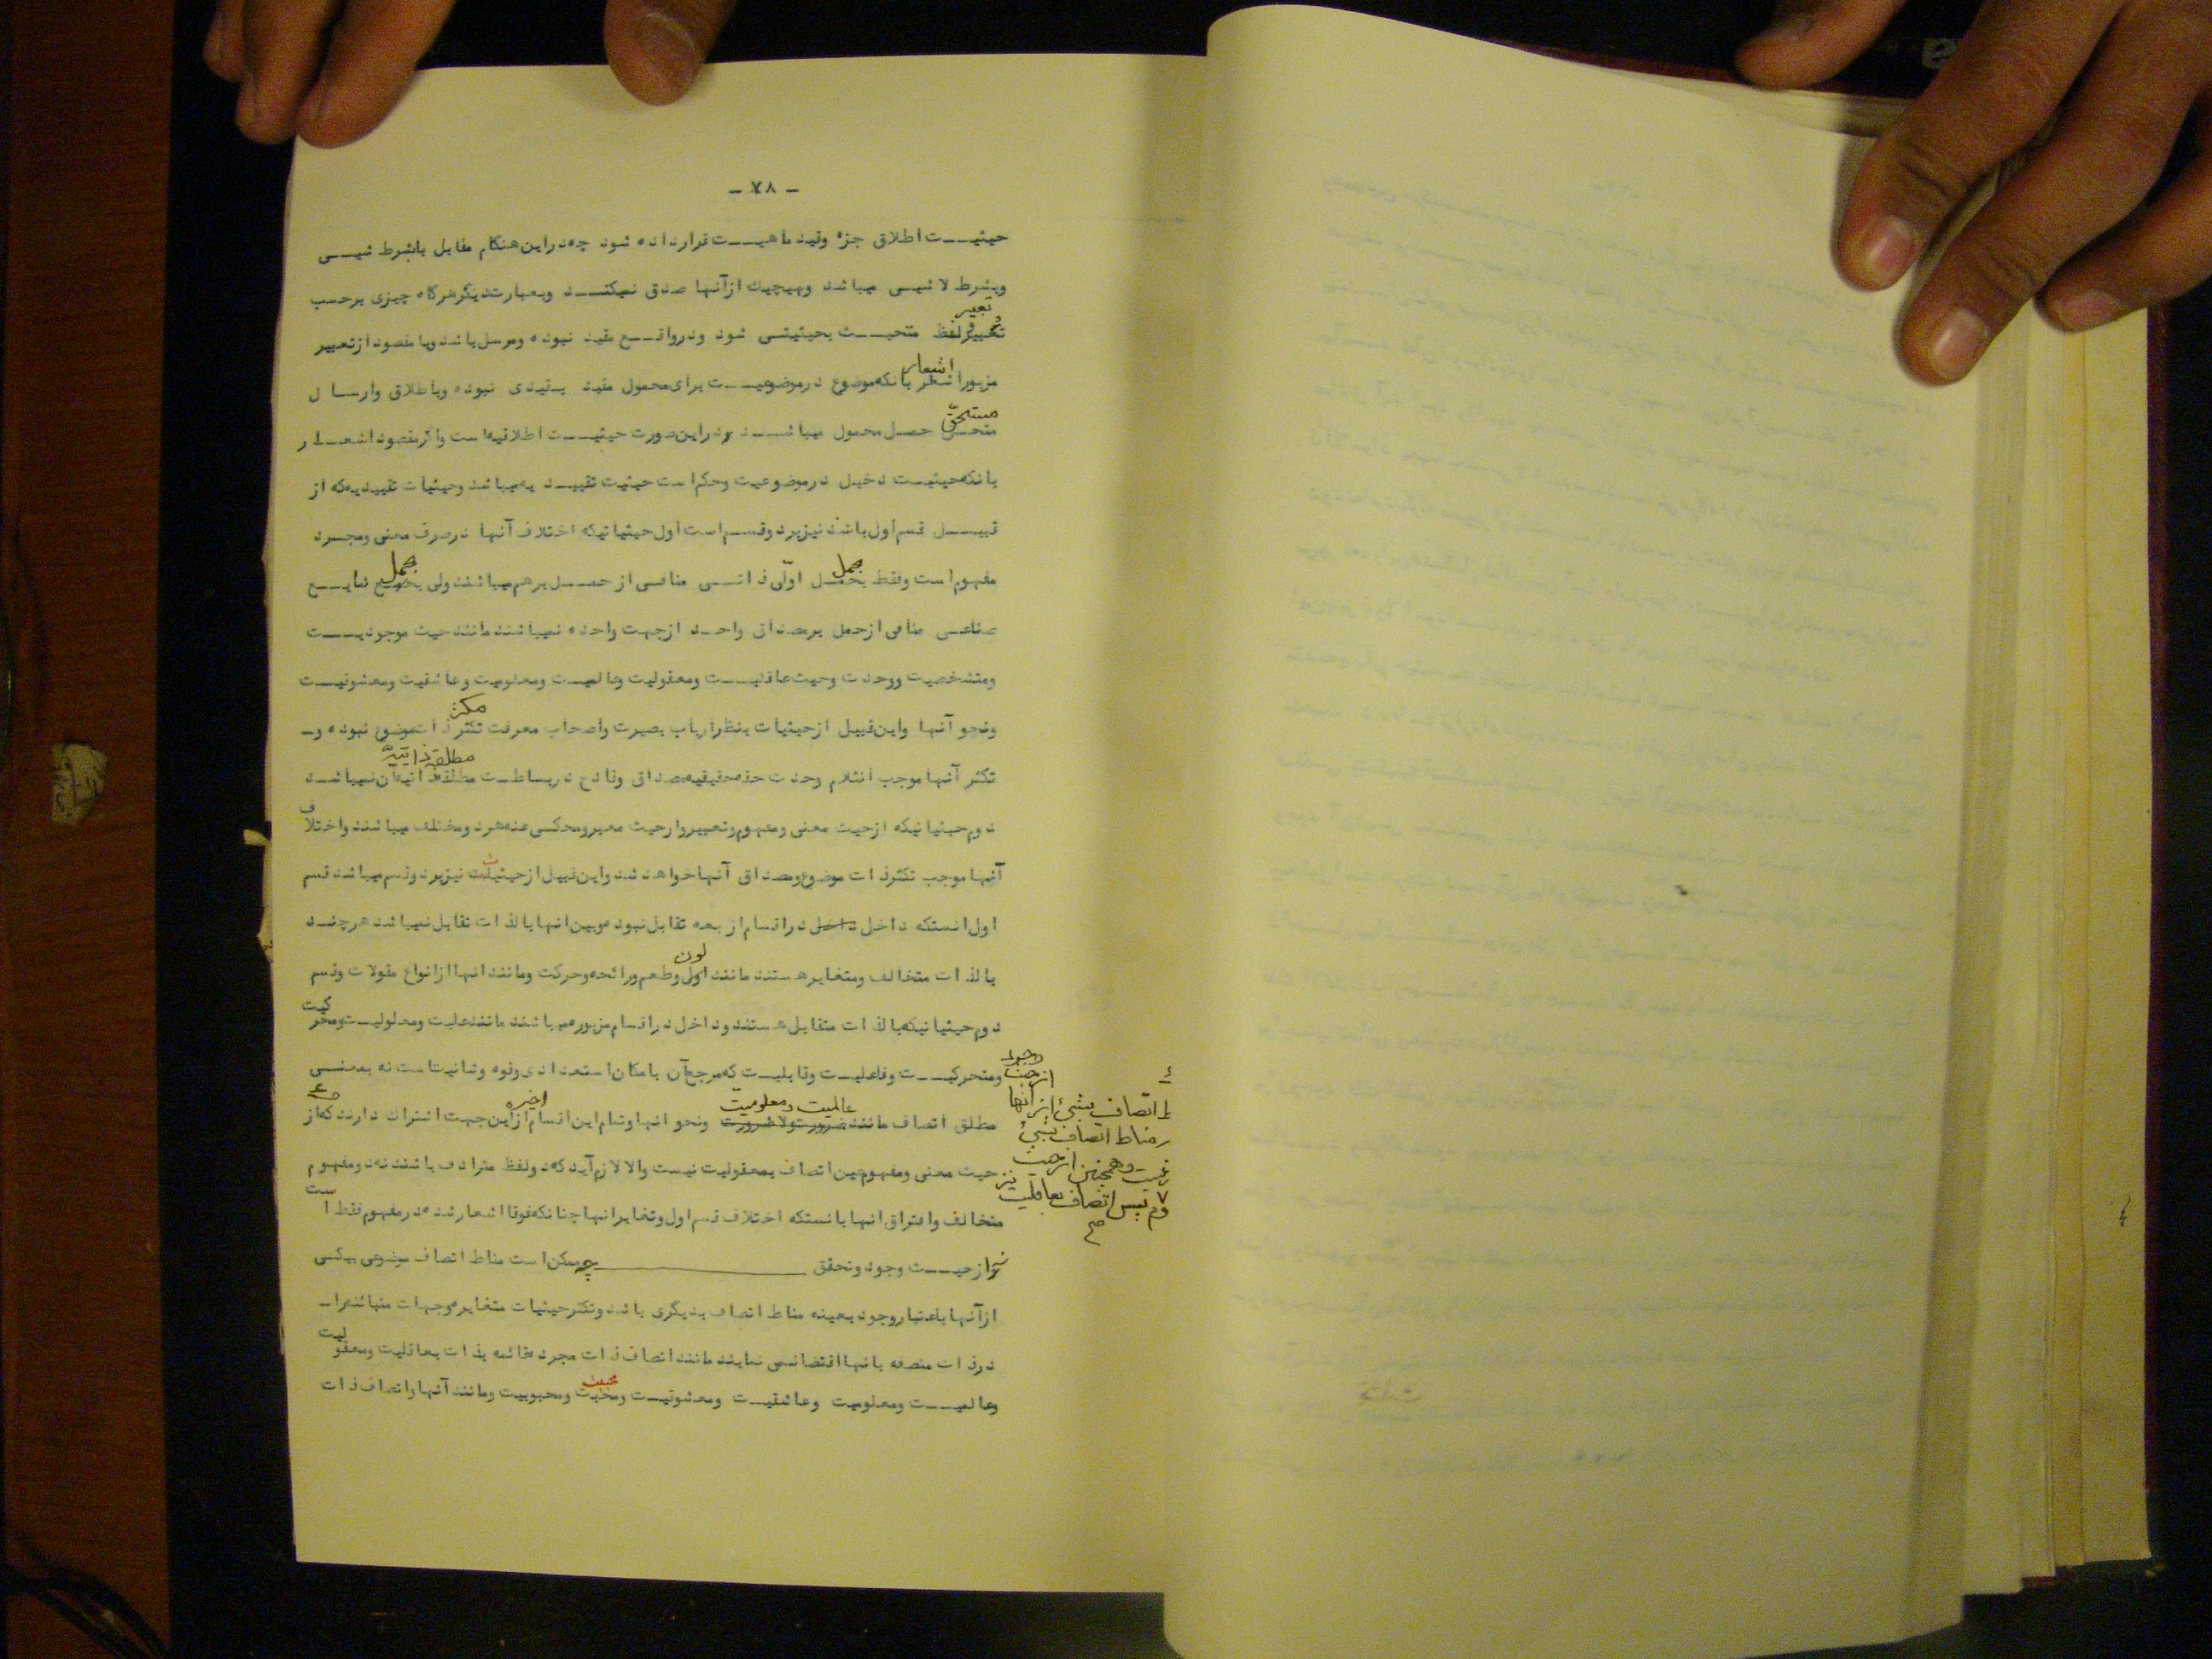 - ۷۸ -
حیثیـــت اطلاق جزء وقید ماهیـــت قرارداده شود چه دراین هنگام مقابل بابشرط شیـــی
وبشرط لا شیـی میباشد وهیچیك ازآنها صدق نمیکنـــد وبعبارت دیگر هرگاه چیزی برحسب
تعبیر
لفظ متحیـــث بحیثیتـی شود ودرواقـــع مقید نبوده ومرسل باشد ویا مقصود ازتعبیر
اشعار
مزبور بانکه موضوع درموضوعیـــت برای محمول مقید بـقیدی نبوده وباطلاق وارسـا ل
مستحقّ
حمـل محمول میباشــــد ودراین صورت حیثیـــت اطلاقیه است واگرمقصود اشعـــار
بانکه حیثیـــت دخیـل درموضوعیت وحکم است حیثیت تقییـــد یه میباشد وحیثیات تقییدیه که از
قبیـــل قسم اول باشد نیزبرد وقســم است اول حیثیاتیکه اختلاف آنهـا درصرف معنی ومجـــرد
بحمل
بحمل
مفهوم است وفقط اوّلی ذاتـــی منافـی از حمـــل برهم میباشند ولی شایـــع
صناعـــی منافی ازحمل برمصداق واحــد ازجهت واحده نمیباشند مانند حیث موجودیـــــت
ومتشخصیت ووحدت وحیث عاقلیـــت ومعقولیت وعالمیـــت ومعلومیت وعاشقیت ومعشوقیـــت
مکثر
ونحو آنهـا واین قبیـل ازحیثیات بنظرارباب بصیرت واصحاب معرفت ذات موضوع نبوده و-
مطلقه ذاتیّه
تکثر آنهـا موجب انثلام وحدت حقه حقیقیه مصداق وقادح دربساطـت آن نمیباشـــد
دوم حیثیاتیکه ازحیث معنی ومفهوم وتعبیر وازحیث معبر ومحکی عنه هردو مختلف میباشند واختلاف
آنهـا موجب تکثرذات موضوع ومصداق آنهـا خواهد شد واین قبیل ازحیثیات نیزبرد وقسم میباشد قسم
اول انستکه داخل دراقسام اربعه تقابل نبوده وبین انها بالذات تقابل نمیباشد هرچنـــد
لون
بالذات متخالف ومتغایر هستند مانند وطعم ورائحه وحرکت ومانند انها ازانواع مقولات وقسم
دوم حیثیاتیکه بالذات متقابل هستند وداخل دراقسام مزبوره میباشند مانند علیت ومعلولیـت ومحرکیت
ومتحرکیـــت وفاعلیـــت وقابلیـت که مرجع آن بامکان استعدادی وقوه وشانیت است نه بمعنـــی
عالمیت ومعلومیّت
اخیره
مطلق اتصاف مانند ونحو انها وتمام این اقسام ازاین جهت اشتراك دارند که از
حیث معنی ومفهوم عین اتصاف بمعقولیت نیست والا لازم آید که دولفظ مترادف باشند نه دومفهوم
متخالف وافتراق انها بانستکه اختلاف قسم اول وتغایرانها چنانکه فوقا اشعار شده درمفهوم فقط است
نه ازحیـــث وجود وتحقق چه ممکن است مناط اتصاف موضوعی بیکـی
ازآنها باعتبار وجود بعینه مناط اتصاف بدیگری باشد وتکثر حیثیات متغایره وجهات متبائنه را-
درذات متصفه بانها اقتضا نمی نمایند مانند اتصاف ذات مجرده قائمه بذات بعاقلیت ومعقولیت
وعالمیـــت ومعلومیت وعاشقیـــت ومعشوقیـــت ومحبیت ومحبوبیت ومانند آنها واتصاف ذات
وجود
ازحیث
اتّصاف بشیئ ازانها
مناط اتصاف بشیئ
وهمچنین ازحیث
پس اتّصاف بعاقلیت نیز
صح